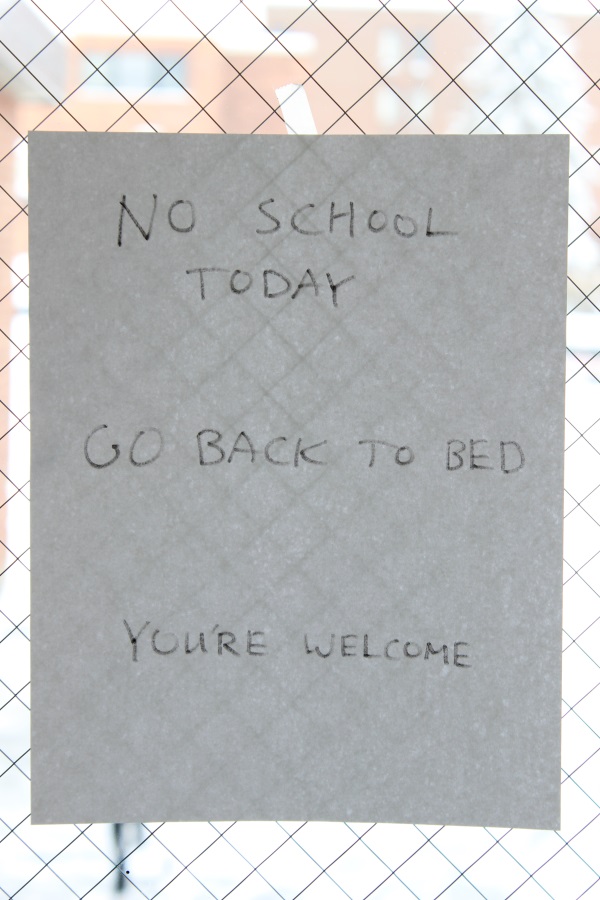 NO SCHOOL
TODAY
GO BACK TO BED
YOU'RE WELCOME